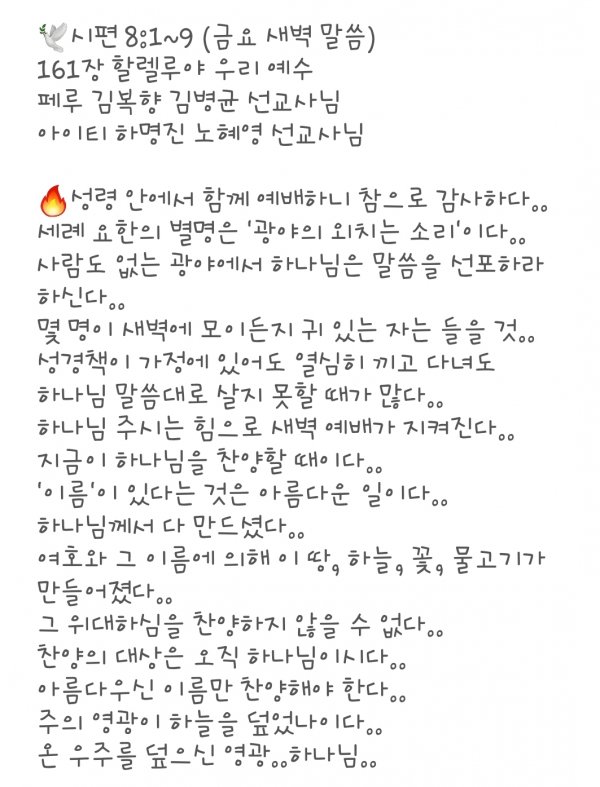 🕊시편 8:1~9 (금요 새벽 말씀)
161장 할렐루야 우리 예수
페루 김복향 김병균 선교사님
아이티 하명진 노혜영 선교사님
🔥성령 안에서 함께 예배하니 참으로 감사하다..
세례 요한의 별명은 '광야의 외치는 소리'이다..
사람도 없는 광야에서 하나님은 말씀을 선포하라
하신다..
몇 명이 새벽에 모이든지 귀 있는 자는 들을 것..
성경책이 가정에 있어도 열심히 끼고 다녀도
하나님 말씀대로 살지 못할 때가 많다..
하나님 주시는 힘으로 새벽 예배가 지켜진다..
지금이 하나님을 찬양할 때이다..
'이름'이 있다는 것은 아름다운 일이다..
하나님께서 다 만드셨다..
여호와 그 이름에 의해 이 땅, 하늘, 꽃, 물고기가
만들어졌다..
그 위대하심을 찬양하지 않을 수 없다..
찬양의 대상은 오직 하나님이시다..
아름다우신 이름만 찬양해야 한다..
주의 영광이 하늘을 덮었나이다..
온 우주를 덮으신 영광..하나님..